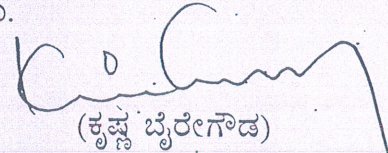 (ಕೃಷ್ಣ ಬೈರೇಗೌಡ)